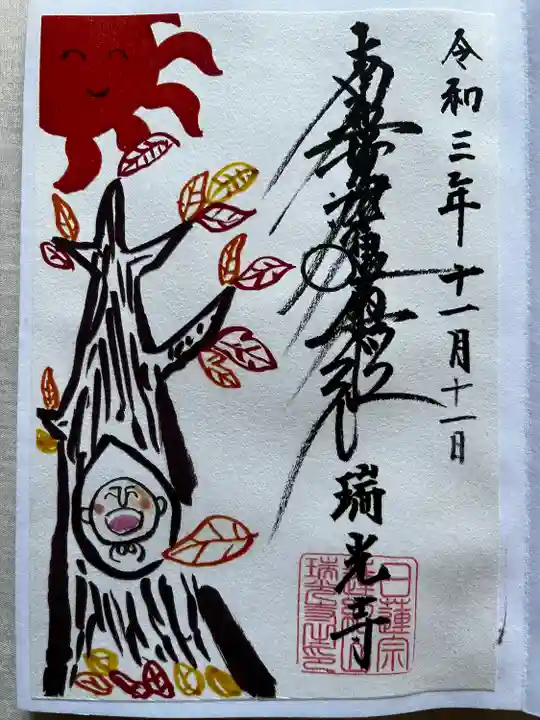 令和三年十一月十一日
南無妙法蓮華経
瑞光寺
日蓮宗